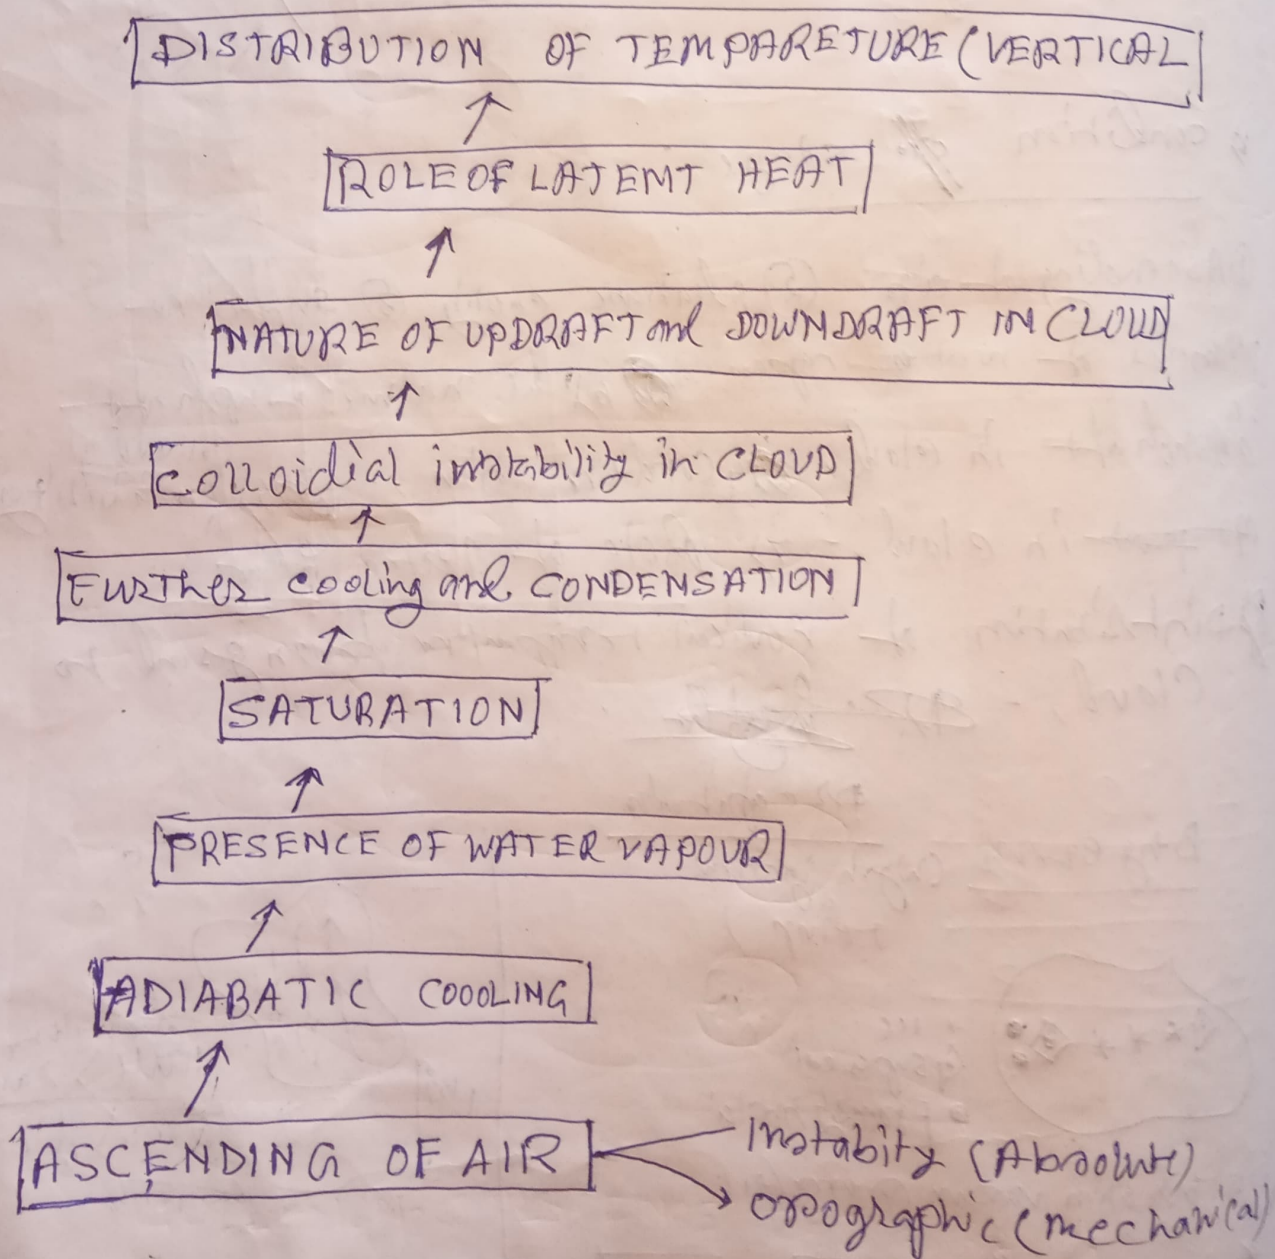 DISTRIBUTION OF TEMPARETURE (VERTICAL
ROLE OF LATEMT HEAT
NATURE OF UPDRAFT and DOWNDRAFT IN CLOUD
COLLOIDIAL instability in CLOUD
FURTHER cooling and CONDENSATION
SATURATION
PRESENCE OF WATER VAPOUR
ADIABATIC COOOLING
ASCENDING OF AIR
Instabity (Absolute)
orographic (mechanical)